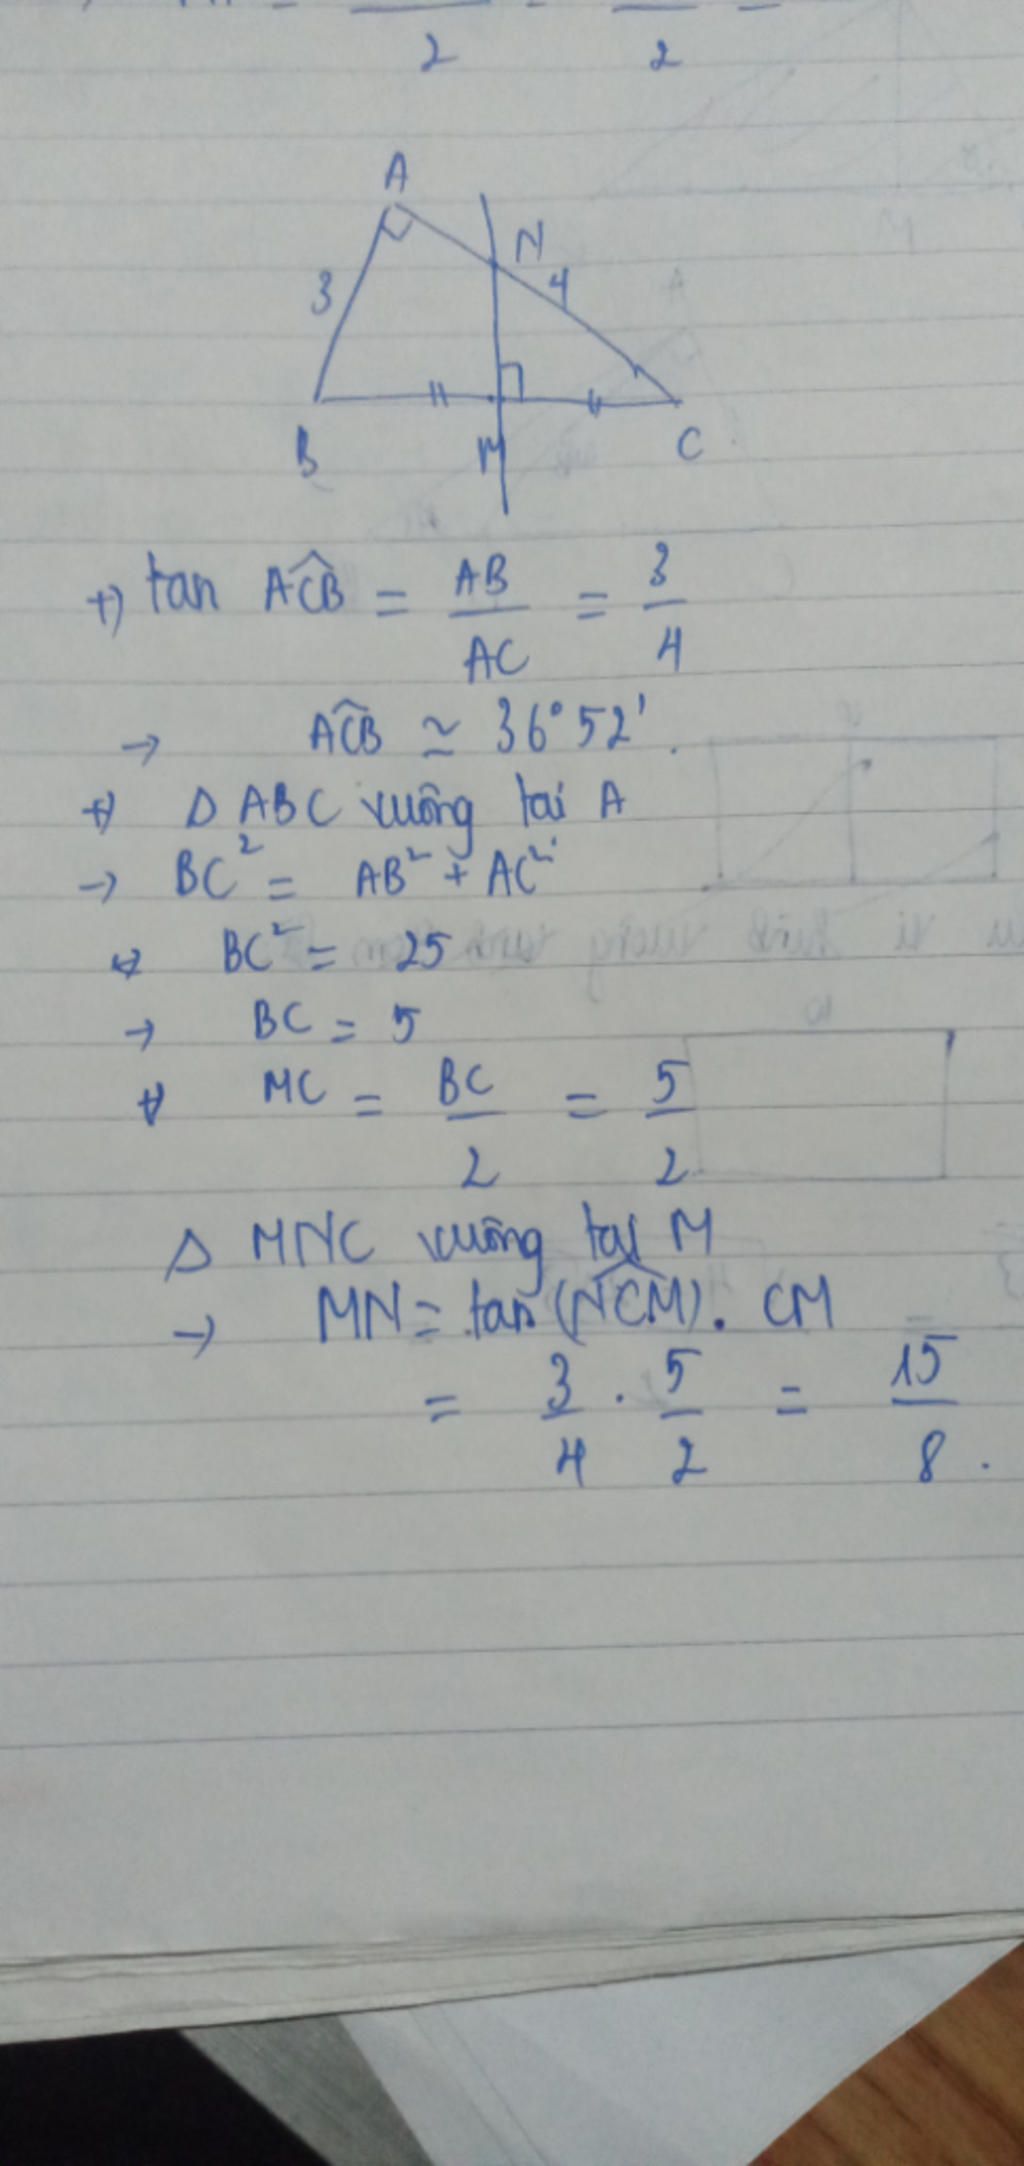 2 2
A
N
3 4
B M C
+) tan ACB = AB/AC = 3/4
→ ACB ≃ 36°52'.
+) Δ ABC vuông tại A
→ BC² = AB² + AC²
⇔ BC² = 25
→ BC = 5
+) MC = BC/2 = 5/2
Δ MNC vuông tại M
→ MN = tan(NCM). CM
= 3/4 . 5/2 = 15/8.